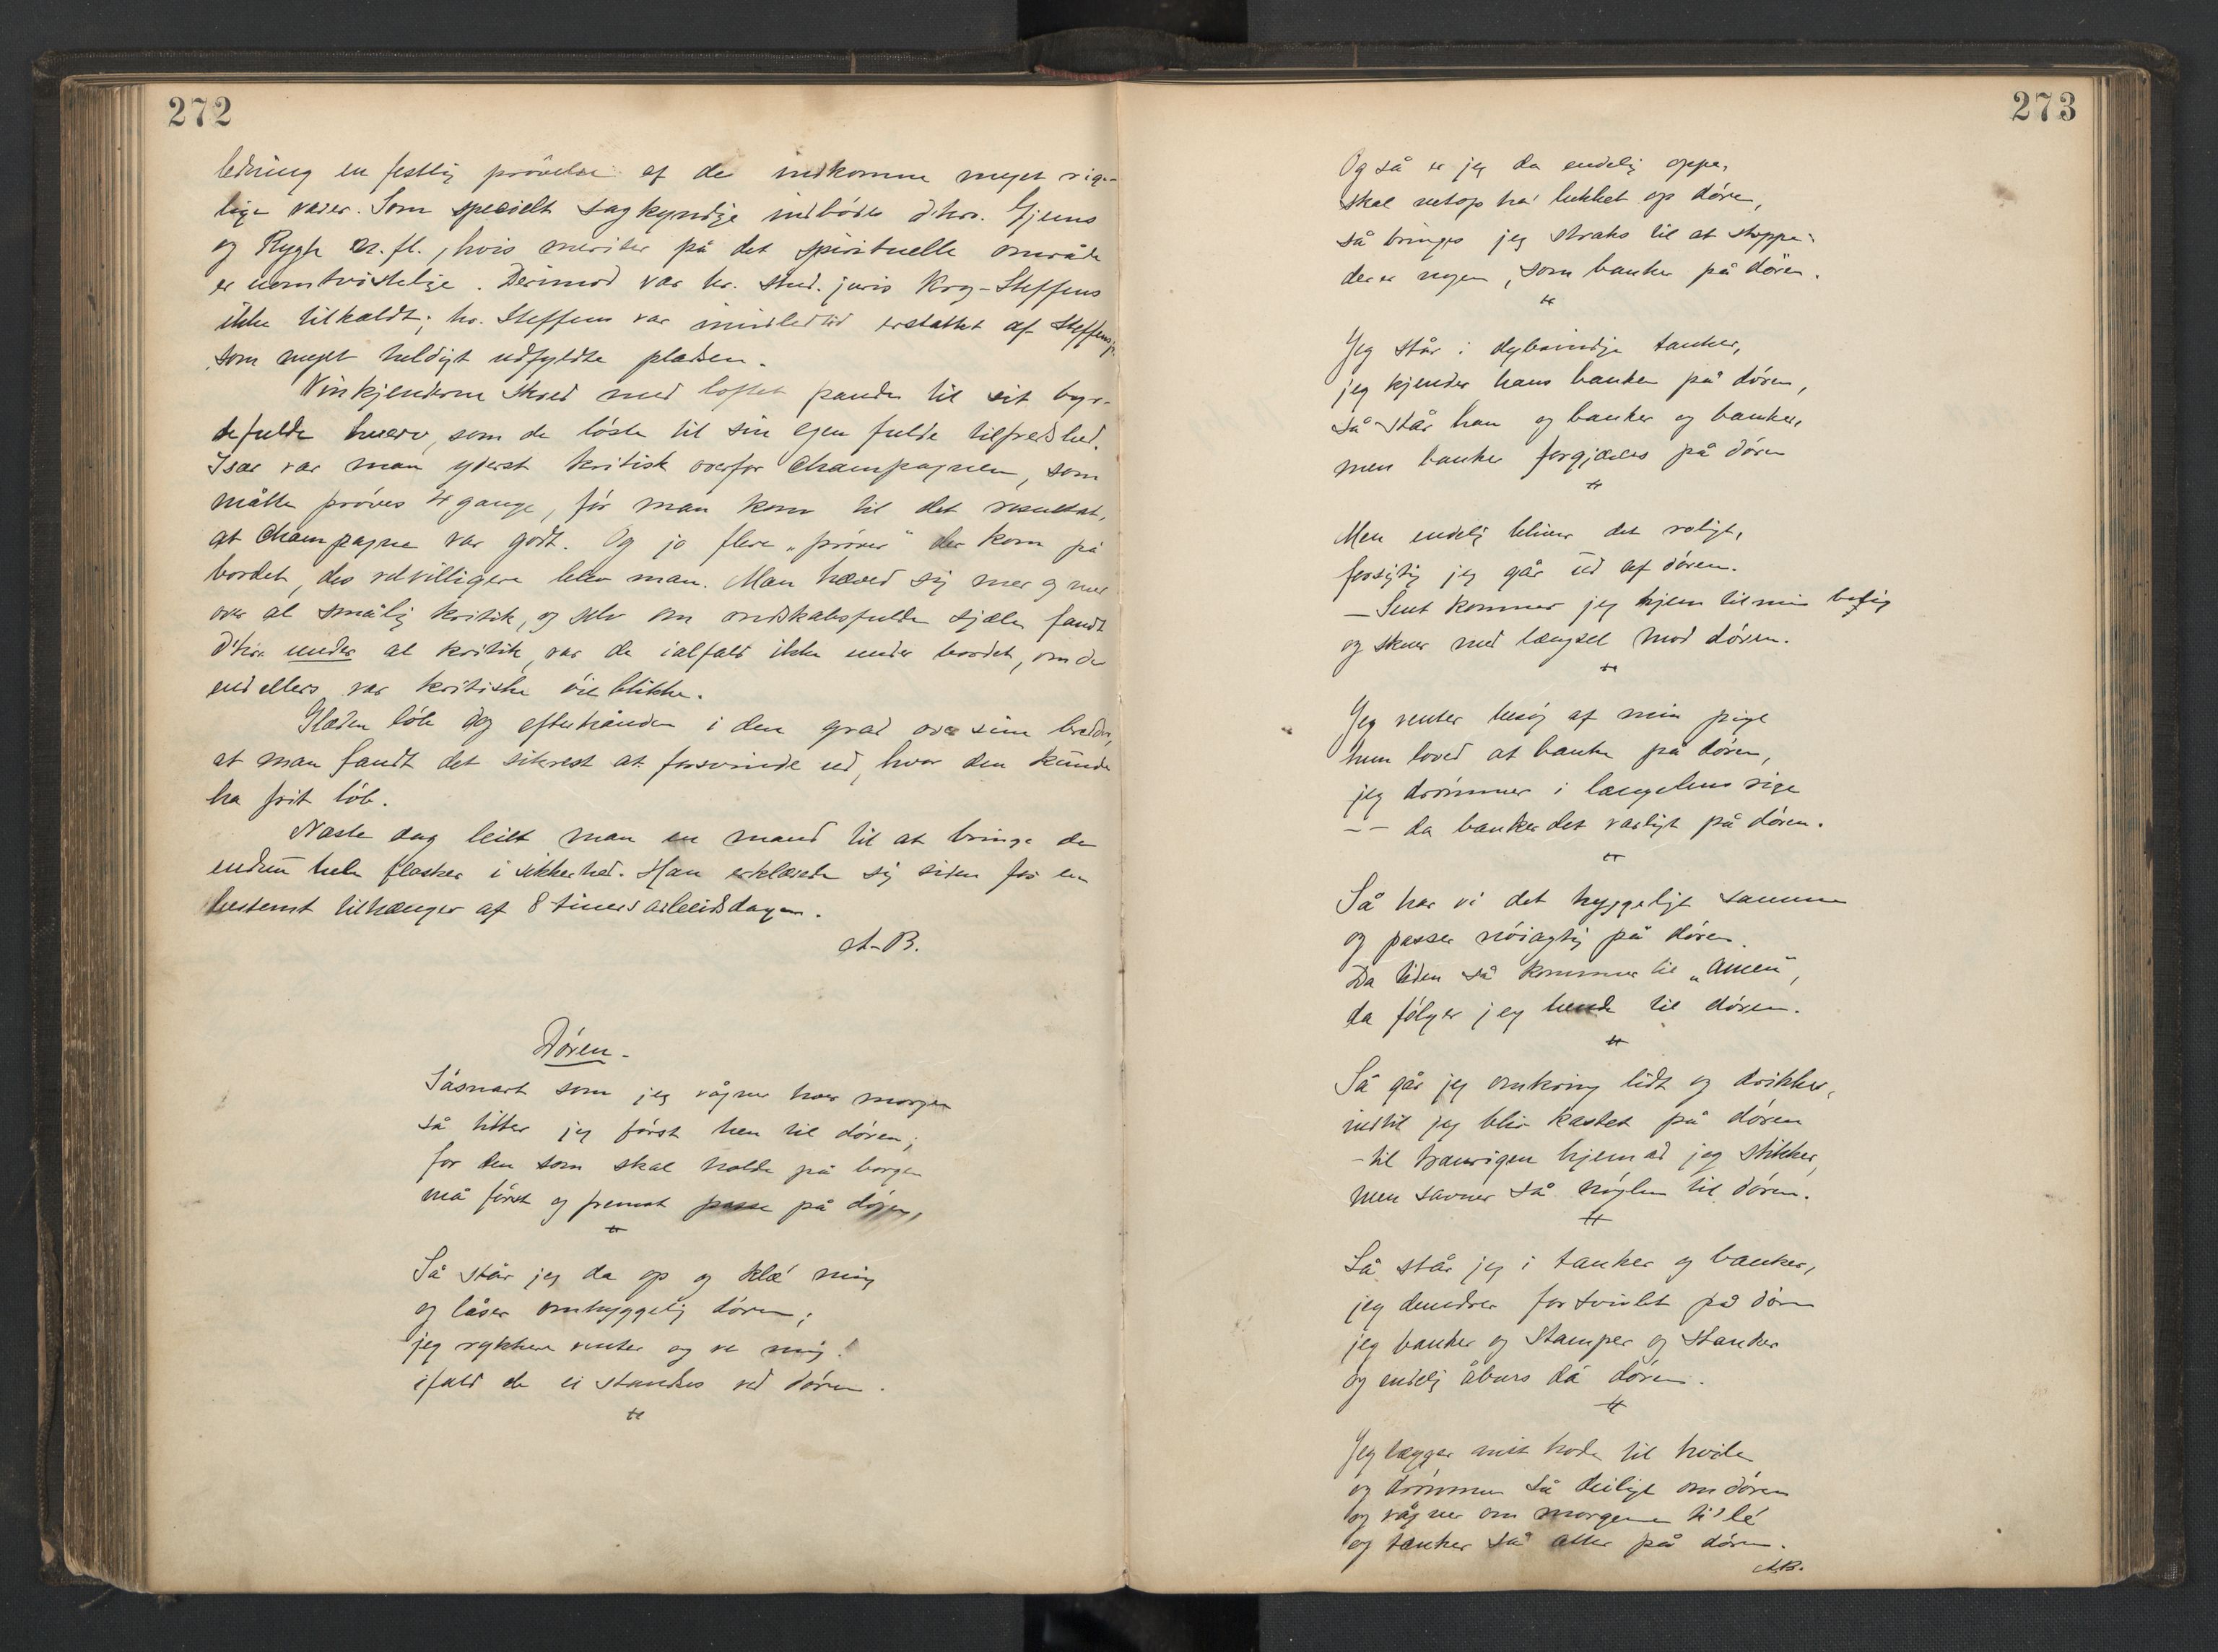 272
ledning en festlig prövelse af de indkomne meget rige-
lige varer. Som specielt sagkyndige indbödes d'hrr. Gjems
og Rygh m. fl., hvis meriter på det spirituelle område
er uomtvistelige. Derimod var hr. stud. juris Krog-Steffens
ikke tilkaldt; hr. Steffens var imidlertid erstattet af Steffens jr.
som meget heldigt udfyldte pladsen.
Vinkjenderne skred med löftet pande til sit byr-
defulde hverv, som de löste til sin egen fulde tilfredshed.
Især var man yderst kritisk overfor Champagnen, som
måtte pröves 4 gange, för man kom til det resultat,
at Champagne var godt. Og jo flere „pröver" der kom på
bordet, des velvilligere blev man. Man hæved sig mer og mer
over al smålig kritik, og selv om ondskabsfulde sjæle fandt
d'hrr. under al kritik, var de ialfald ikke under bordet, om der
end ellers var kritiske öieblikke.
Glæden löb dog efterhånden i den grad over sine bredder,
at man fandt det sikrest at forsvinde ud, hvor den kunde
ha frit löb.
Næste dag leiet man en mand til at bringe de
endnu hele flasker i sikkerhed. Han erklærede sig siden for en
bestemt tilhænger af 8 timers arbeidsdagen.
A-B.
Dören.
Såsnart som jeg vågner hver morgen
så titter jeg först hen til dören;
for den som skal holde på borgen
må först og fremst passe på dören,
Så står jeg da op og klæ' mig
og låser omhyggelig dören;
jeg rykkere venter og ve mig!
ifald de ei standses ved dören.
273
Og så er jeg da endelig oppe,
skal netop ha' lukket op dören,
så bringes jeg straks til at stoppe:
der er nogen, som banker på dören.
Jeg står i dybsindige tanker,
jeg kjender hans banken på dören,
så står han og banker og banker,
men banker forgjæves på dören
Men endelig bliver det roligt,
forsigtig jeg går ud af dören.
– Sent kommer jeg hjem til min bolig
og skuer med længsel mod dören.
Jeg venter besög af min pige
hun loved at banke på dören,
jeg drömmer i længselens rige
– – da banker det varligt på dören.
Så har vi det hyggeligt sammen
og passer nöiagtig på dören.
Da tiden så kommer til „amen",
da fölger jeg hende til dören.
Så går jeg omkring lidt og drikker,
indtil jeg blir kastet på dören
– til Baurigen hjemad jeg stikker,
men savner så nöglen til dören.
Så står jeg i tanker og banker,
jeg dundrer fortvivlet på dören
jeg banker og stamper og stanker
og endelig åbnes da dören.
Jeg lægger mit hode til hvile
og drömmer så deiligt om dören
og vågner om morgenen
og tænker så atter på dören.
A.B.